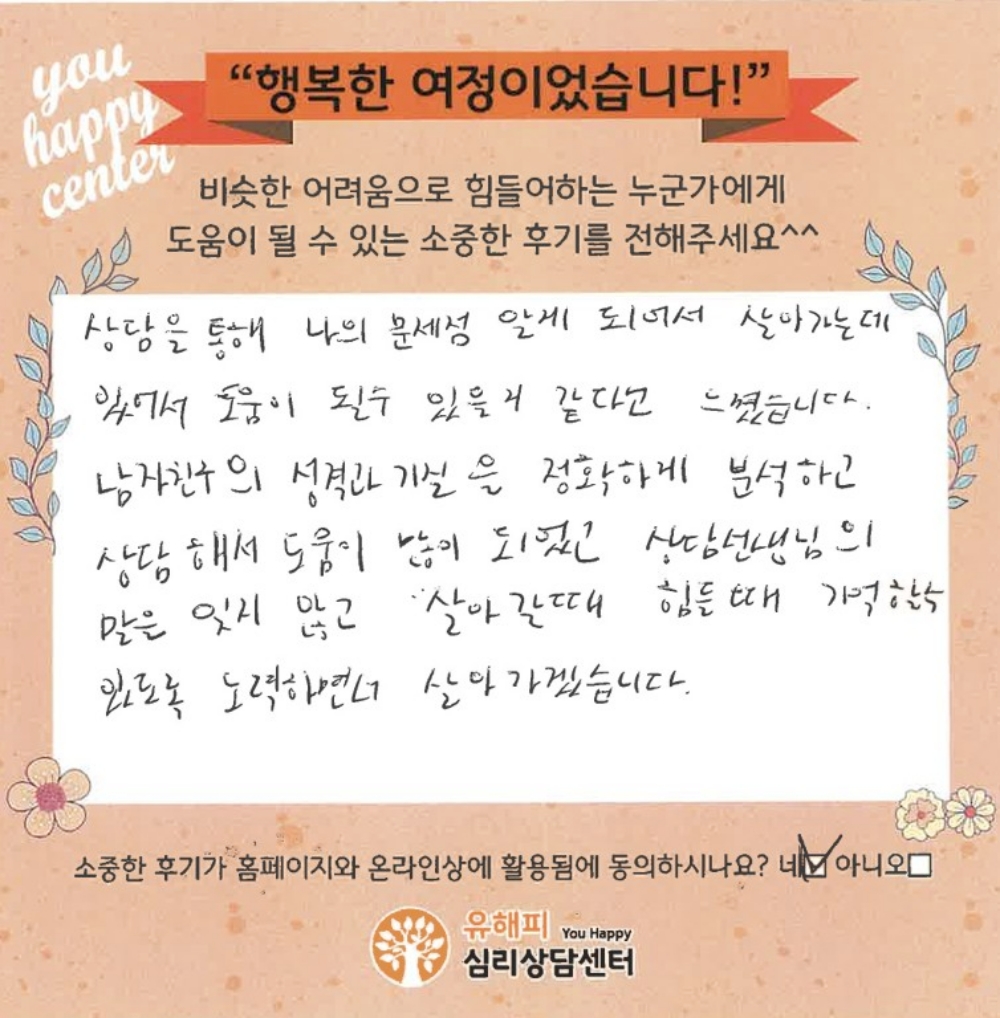 you
happy
center
“행복한 여정이었습니다!”
비슷한 어려움으로 힘들어하는 누군가에게
도움이 될 수 있는 소중한 후기를 전해주세요^^
상담을 통해 나의 문세점 알게 되어서 살아가는데
있어서 도움이 될수 있을거 같다고 느꼈습니다.
남자친구의 성격과 기질을 정확하게 분석하고
상담해서 도움이 많이 되었고 상담선생님의
말을 잊지 않고 살아갈때 힘들때 기억할수
있도록 노력하면서 살아가겠습니다.
소중한 후기가 홈페이지와 온라인상에 활용됨에 동의하시나요? 네 아니오
유해피 You Happy
심리상담센터